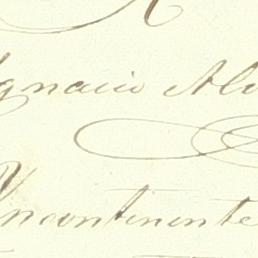 Ignacio Al
Yncontinente